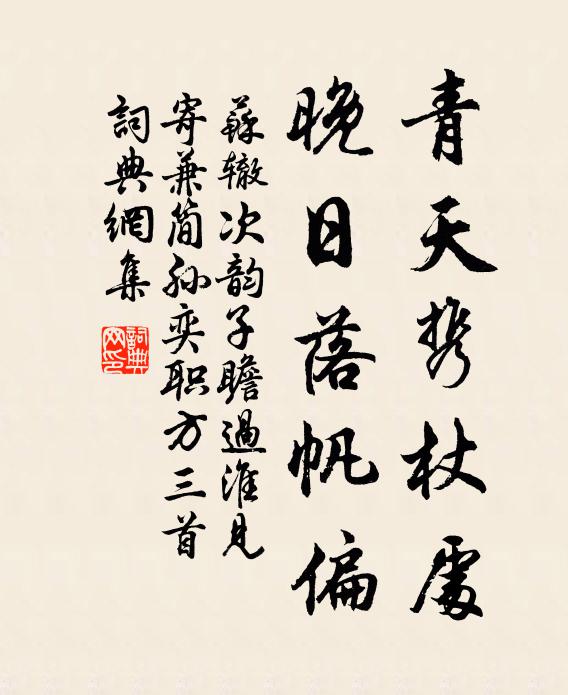 青天携杖處
晚日落帆偏
蘇辙次韵子瞻過淮見
寄兼简孙奕职方三首
詞典網集
詞典网印